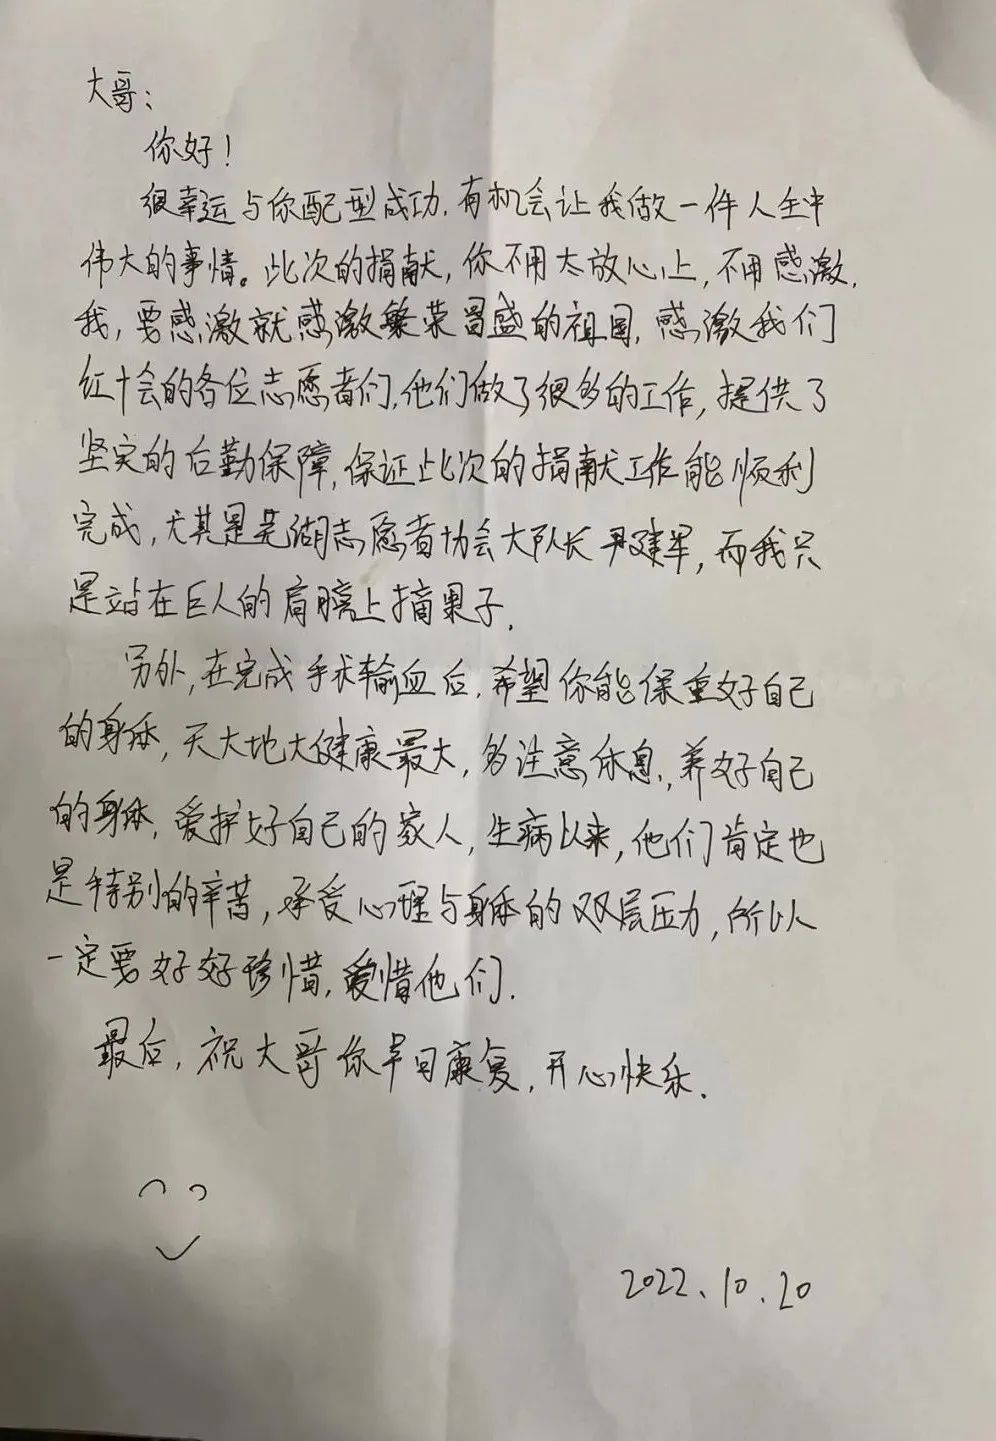 大哥：
你好！
很幸运与你配型成功，有机会让我做一件人生中
伟大的事情。此次的捐献，你不用太放心上，不用感激，
我，要感激就感激繁荣昌盛的祖国，感激我们
红十会的各位志愿者们，他们做了很多的工作，提供了
坚实的后勤保障，保证此次的捐献工作能顺利
完成，尤其是芜湖志愿者协会大队长尹建军，而我只
是站在巨人的肩膀上摘果子．
另外，在完成手术输血后，希望你能保重好自己
的身体，天大地大健康最大，多注意休息，养好自己
的身体，爱护好自己的家人，生病以来，他们肯定也
是特别的辛苦，承受心理与身体的双层压力，所以
一定要好好珍惜，爱惜他们．
最后，祝大哥你早日康复，开心快乐．
2022.10.20